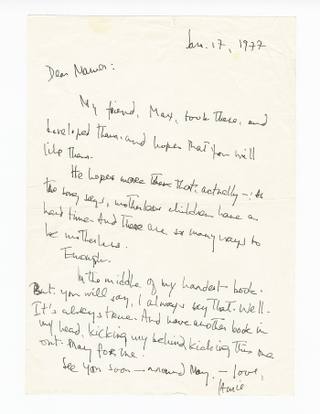 Jan. 17, 1977
Dear Mamos:
My friend, Max, took these, and
developed them. and hopes that you will
like them.
He hopes more than that, actually — : As
the song says, motherless children have a
hard time. And there are so many ways to
be motherless.
Enough.
In the middle of my hardest book.
But, you will say, I always say that. Well.
It's always true. And have another book in
my head, kicking my behind, kicking this one
out. Pray for me.
See you soon — around May. — love,